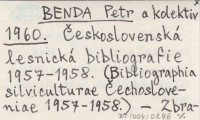 BENDA Petr a kolektiv
1960. Československá
lesnická bibliografie
1957-1958. (Bibliographia
silviculturae Čechoslove-
niae 1957-1958.) - Zbra-